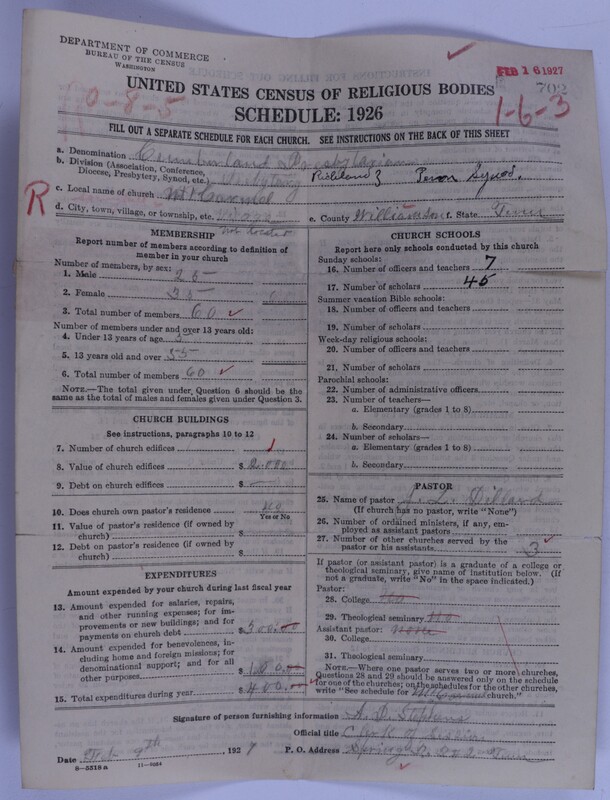 DEPARTMENT OF COMMERCE
BUREAU OF THE CENSUS
WASHINGTON
FEB 16 1927
702
0-8-5
1-6-3
UNITED STATES CENSUS OF RELIGIOUS BODIES
SCHEDULE: 1926
FILL OUT A SEPARATE SCHEDULE FOR EACH CHURCH. SEE INSTRUCTIONS ON THE BACK OF THIS SHEET
a. Denomination Cumberland Presbyterian
b. Division (Association, Conference, Diocese, Presbytery, Synod, etc.) Presbytery Richland 3 Tenn Synod.
R
c. Local name of church Mt Carmel
d. City, town, village, or township, etc.
not located
e. County Williamson f. State Tenn
MEMBERSHIP
Report number of members according to definition of
member in your church
Number of members, by sex:
1. Male 25
2. Female 35
3. Total number of members 60
Number of members under and over 13 years old:
4. Under 13 years of age 5
5. 13 years old and over 55
6. Total number of members 60
NOTE.—The total given under Question 6 should be
same as the total of males and females given under Question 3.
CHURCH BUILDINGS
See instructions, paragraphs 10 to 12
7. Number of church edifices 1
8. Value of church edifices $ 2000
9. Debt on church edifices $
10. Does church own pastor's residence no
Yes or No
11. Value of pastor's residence (if owned by
church) $
12. Debt on pastor's residence (if owned by
church) $
EXPENDITURES
Amount expended by your church during last fiscal year
13. Amount expended for salaries, repairs,
and other running expenses; for im-
provements or new buildings; and for
payments on church debt $ 300.00
14. Amount expended for benevolences, in-
cluding home and foreign missions; for
denominational support; and for all
other purposes $ 100.00
15. Total expenditures during year $ 400.00
CHURCH SCHOOLS
Report here only schools conducted by this church
Sunday schools:
16. Number of officers and teachers 7
17. Number of scholars 45
Summer vacation Bible schools:
18. Number of officers and teachers
19. Number of scholars
Week-day religious schools:
20. Number of officers and teachers
21. Number of scholars
Parochial schools:
22. Number of administrative officers
23. Number of teachers—
a. Elementary (grades 1 to 8)
b. Secondary
24. Number of scholars—
a. Elementary (grades 1 to 8)
b. Secondary
PASTOR
25. Name of pastor Dillard
(If church has no pastor, write "None")
26. Number of ordained ministers, if any, em-
ployed as assistant pastors
27. Number of other churches served by the
pastor or his assistants 3
If pastor (or assistant pastor) is a graduate of a college or
theological seminary, give name of institution below. (If
not a graduate, write "No" in the space indicated.)
Pastor:
28. College No
29. Theological seminary No
Assistant pastor: none
30. College
31. Theological seminary
NOTE.—Where one pastor serves two or more churches,
Questions 28 and 29 should be answered only on the schedule
for one of the churches; on the schedules for the other churches,
write "See schedule for church."
Signature of person furnishing information Stephens
Official title Clerk of Session
Date Feb 9th, 1927 P. O. Address Spring Tenn
8-5318a 11-9064